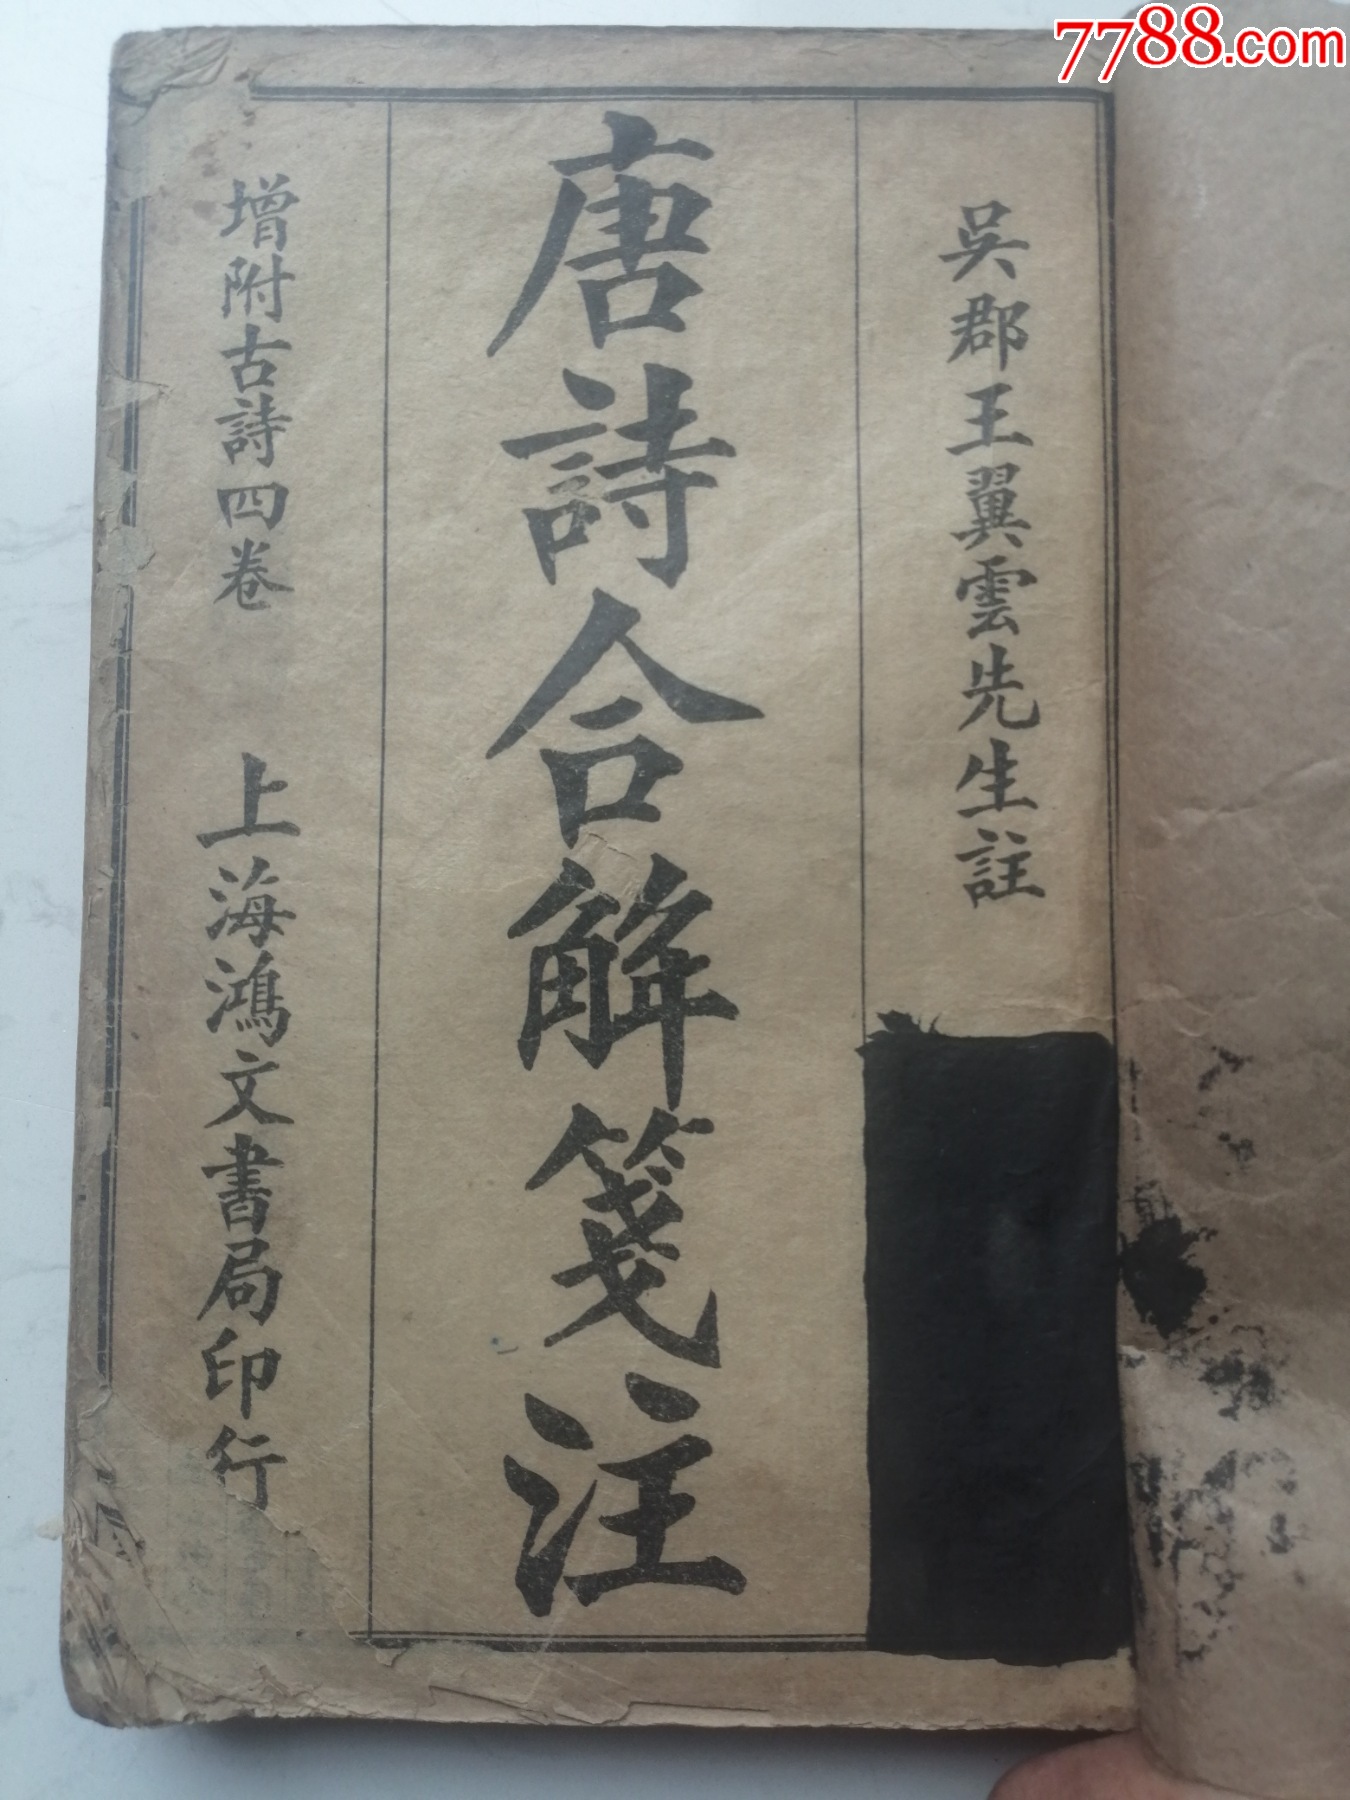 7788.com
吳郡王翼雲先生註
唐詩合解箋注
增附古詩四卷 上海鴻文書局印行